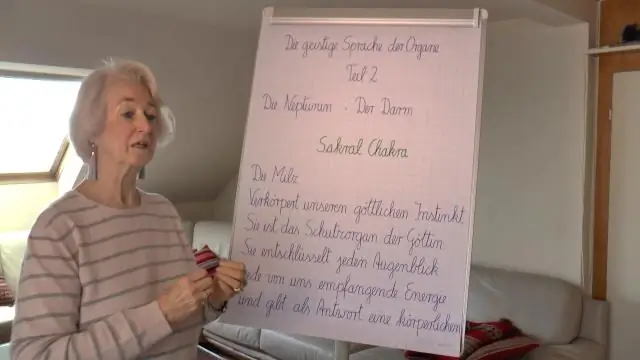 Die geistige Sprache der Organe
Teil 2
Die Neptunin - Der Darm
Sakral Chakra
Die Milz
Verkörpert unseren göttlichen Instinkt
Sie ist das Schutzorgan der Göttin
Sie entschlüsselt jeden Augenblick
jede von uns empfangende Energie
und gibt als Antwort eine körperlichen